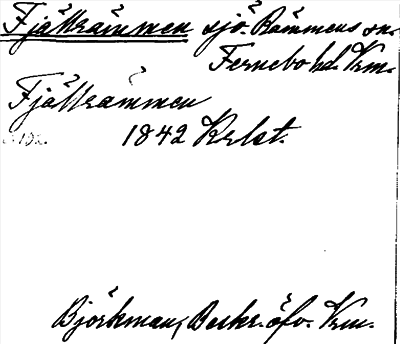 Fjällrämmen sjö. Rämmens sn.
Fernebo hd. Vrm.
Fjällrämmen
1842 Krlst.
Björkman, Beskr. öfv. Vrm.